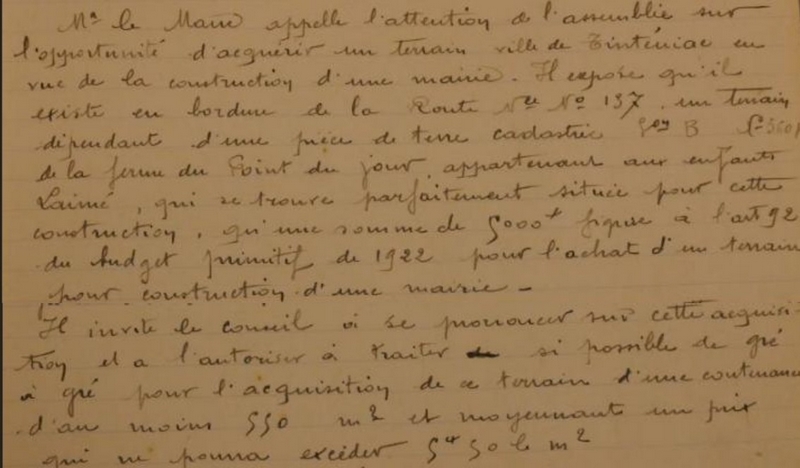 Mr le Maire appelle l'attention de l'assemblée sur
l'opportunité d'acquérir un terrain ville de Tinténiac en
vue de la construction d'une mairie. Il expose qu'il
existe en bordure de la Route Nle No 137, un terrain
dépendant d'une pièce de terre cadastrée Son B
de la ferme du Point du jour, appartenant aux enfants
Laimé, qui se trouve parfaitement située pour cette
construction, qu'une somme de 5000f figure à l'art 92
du budget primitif de 1922 pour l'achat d'un terrain
pour construction d'une mairie -
Il invite le conseil à se prononcer sur cette acquisi-
tion et a l'autoriser à traiter si possible de gré
à gré pour l'acquisition de ce terrain d'une contenance
d'au moins 550 m2 et moyennant un prix
qui ne pourra excéder 5f 50 le m2